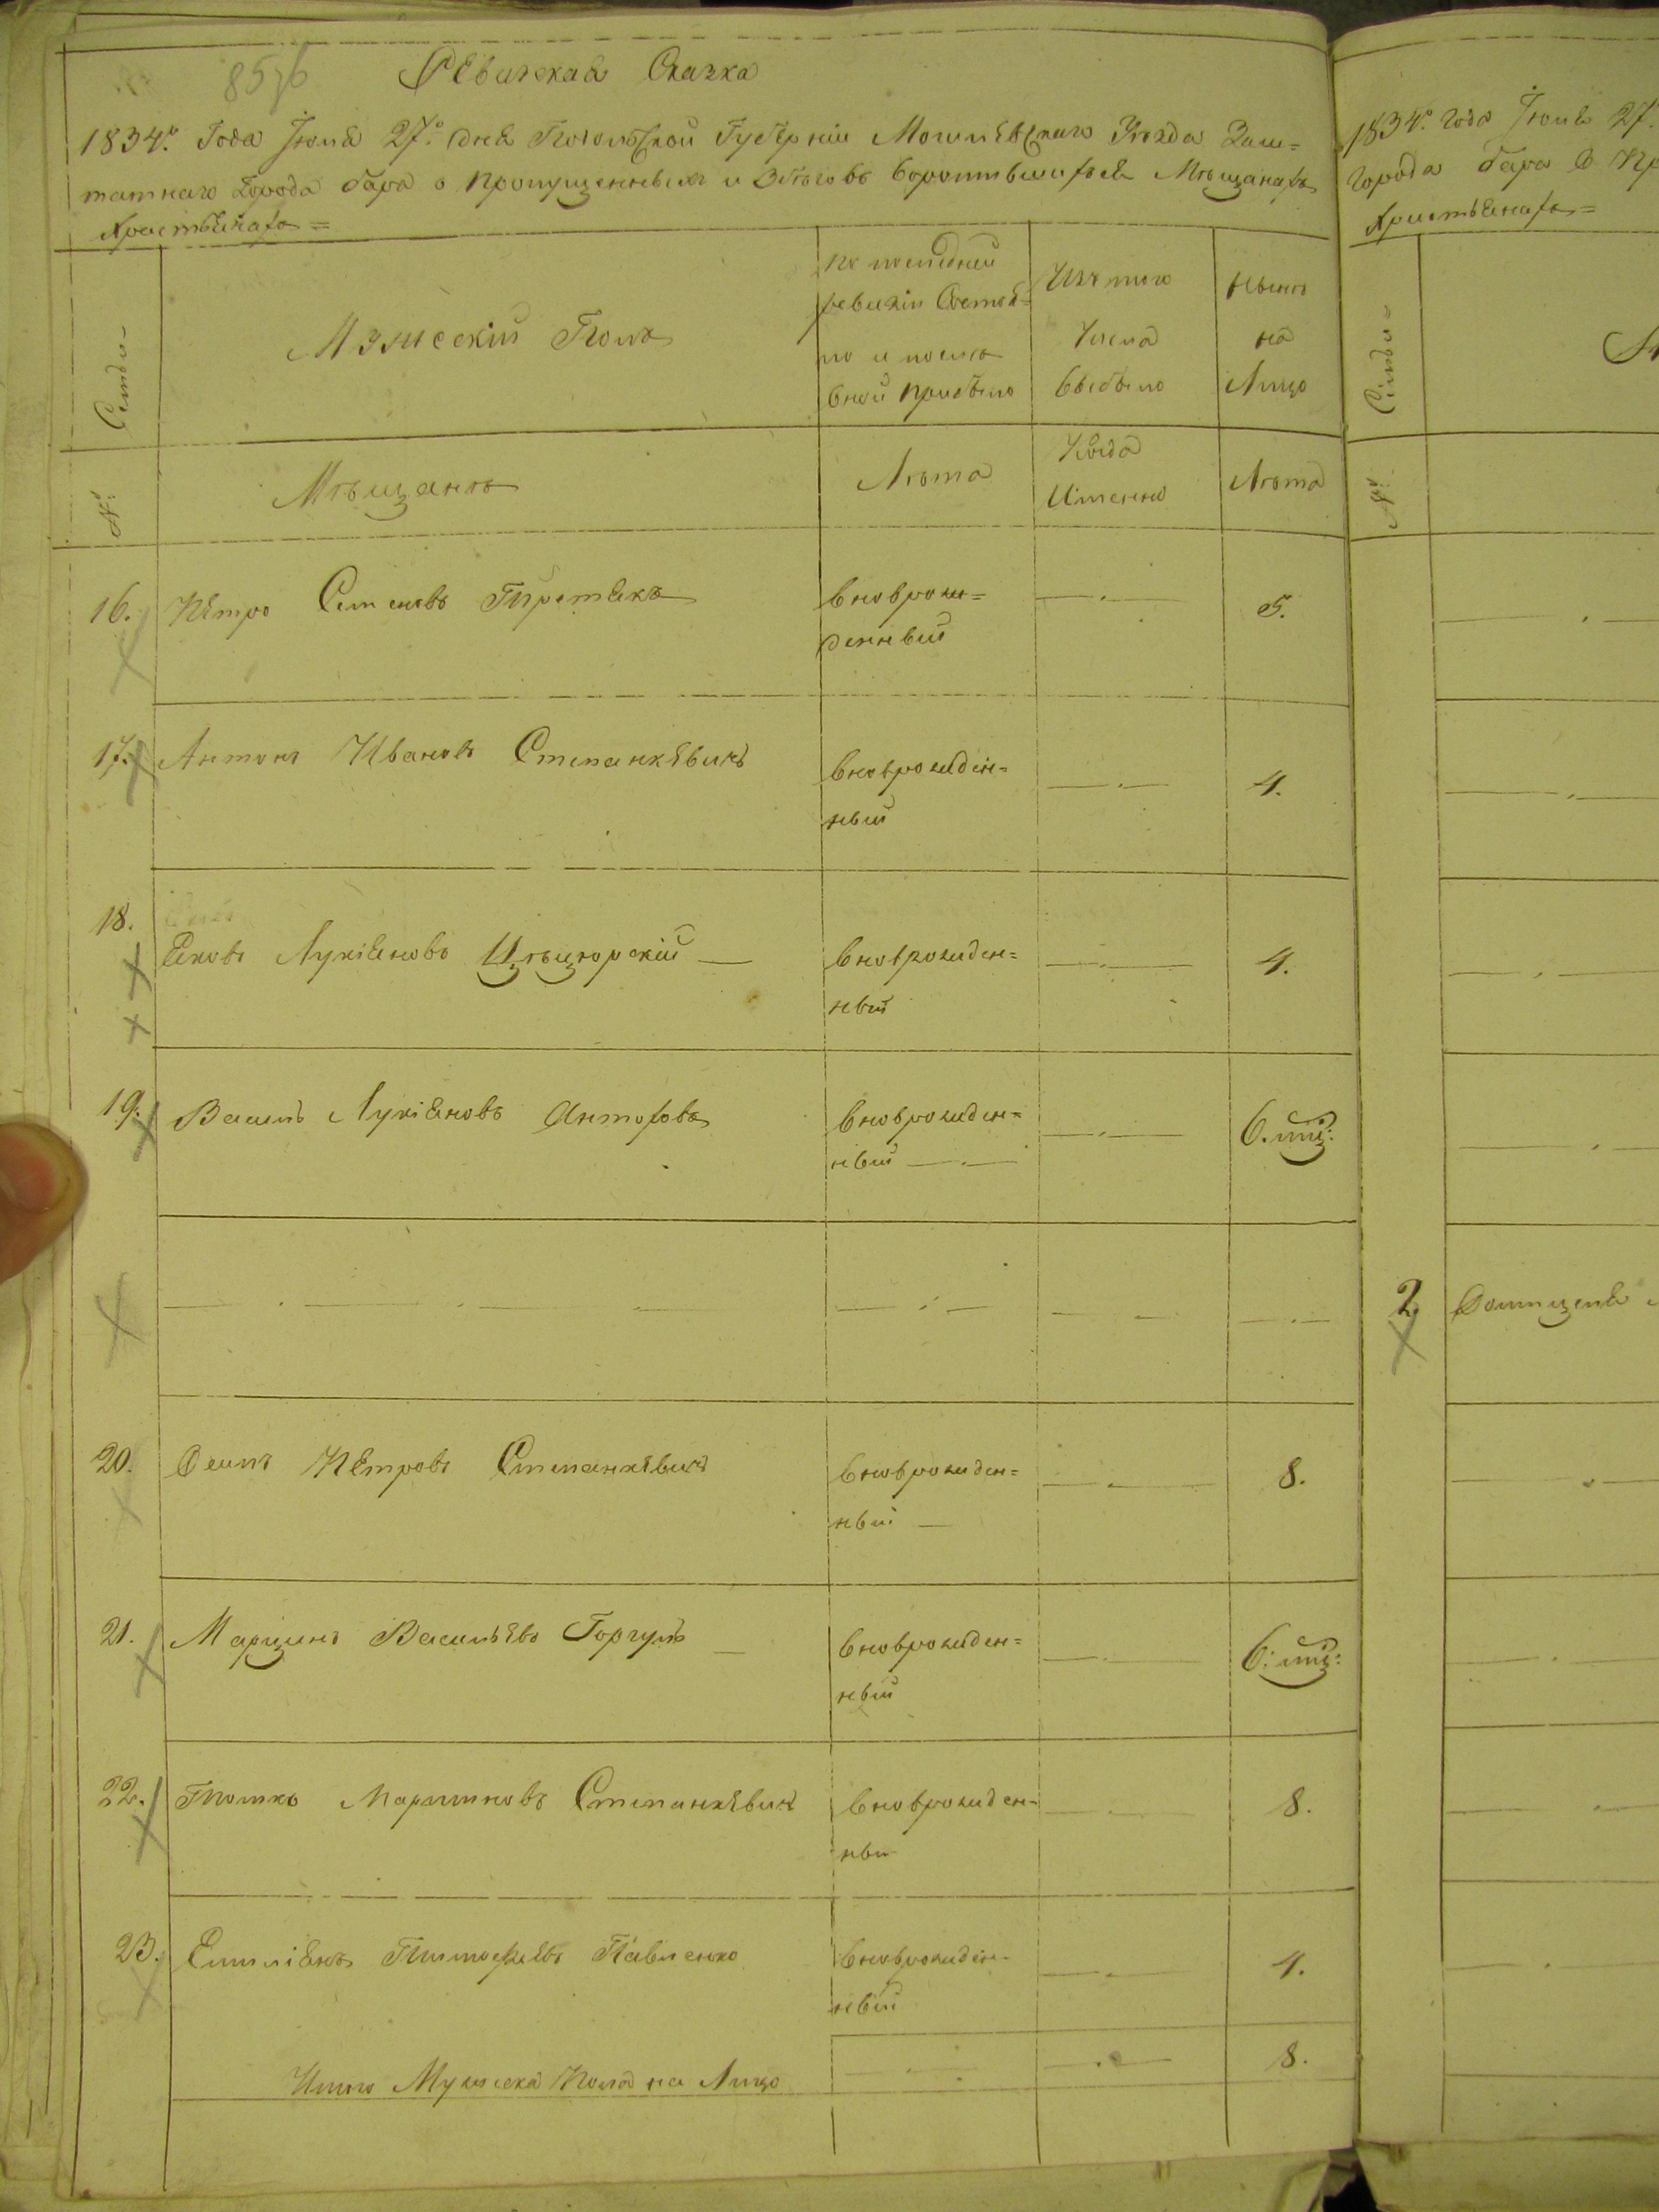 Ревизская Сказка
1834го Года Іюня 27го дня Подольской Губерніи Могилевскаго Уезда Заш=
татнаго Города Бара о пропущенныхъ и
Христьянахъ=
Семьи=
Мужескій Полъ
По последней
ревизіи Состоя=
ло и после
оной прибыло
Изъ того
Числа
выбыло
Ныне
на
Лицо
№:
Мѣщане
Лѣта
Когда
Именно
Лѣта
16. Петро Семеновъ
Новорож=
денный
5.
17. Антонъ Ивановъ Степанкевичъ
Новорожден=
ный
4.
18. Яковъ Лукіяновъ
Новорожден=
ный
4.
19. Василь Лукіяновъ
Новорожден=
ный
6. мѣц:
20. Осипъ Петровъ Степанкевичъ
Новорожден=
ный
8.
21. Марцинъ Васильевъ Горгуль
Новорожден=
ный
6: мѣц:
22. Томко Мартиновъ Степанкевичъ
Новорожден=
ный
8.
23. Емиліянъ Тимофеевъ Павленко
Новорожден=
ный
4.
Итого Мужеска Пола на Лицо
8.
1834го Года Іюня 27го
Города Бара о Пр
Христьянахъ=
Семьи=
№:
2.